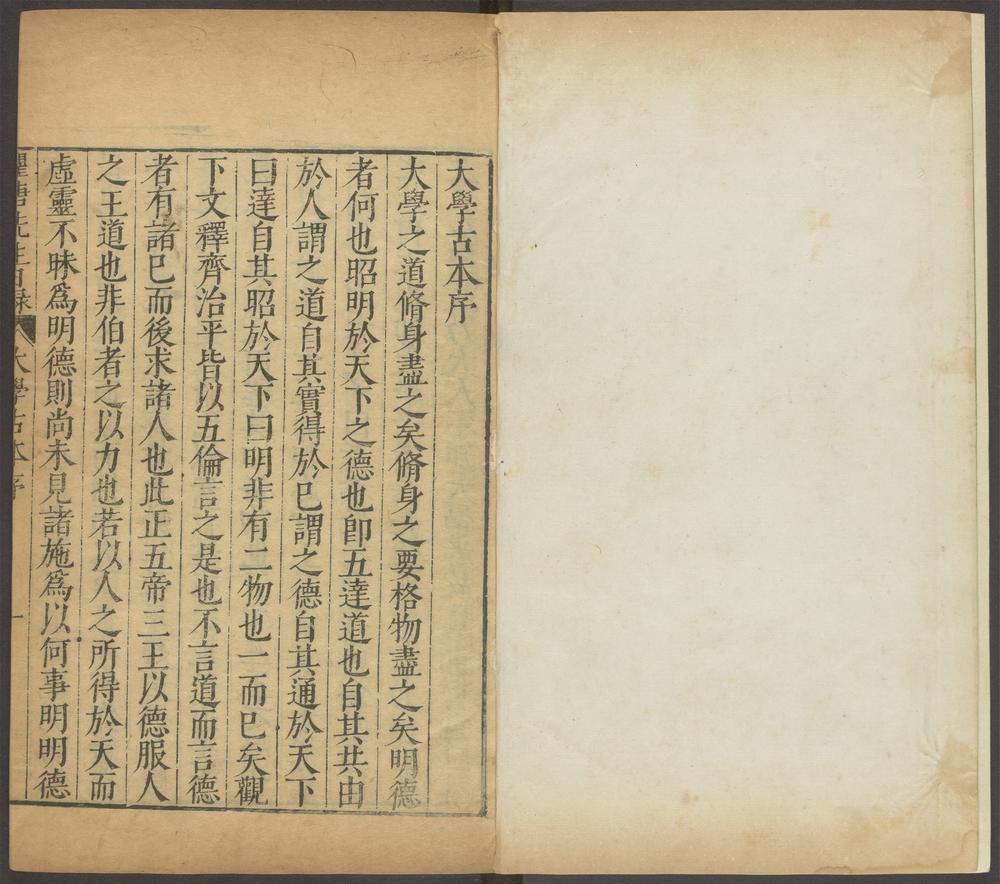 大學古本序
大學之道脩身盡之矣脩身之要格物盡之矣明德
者何也昭明於天下之德也卽五達道也自其共由
於人謂之道自其實得於己謂之德自其通於天下
曰達自其昭於天下曰明非有二物也一而已矣觀
下文釋齊治平皆以五倫言之是也不言道而言德
者有諸己而後求諸人也此正五帝三王以德服人
之王道也非伯者之以力也若以人之所得於天而
虛靈不昧爲明德則尚未見諸施爲以何事明明德
瞿塘先生日錄 大學古本序 一